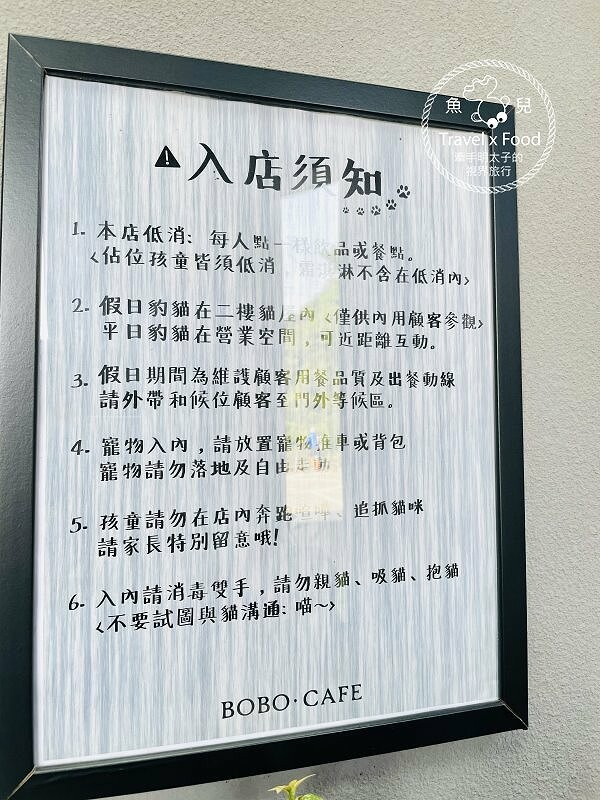 魚兒
Travel x Food
牽手明太子的
視界旅行
入店須知
1. 本店低消: 每人點一樣飲品或餐點。
<佔位孩童皆須低消，霜淇淋不含在低消內>
2. 假日豹貓在二樓貓屋內<僅供內用顧客參觀>
平日豹貓在營業空間，可近距離互動。
3. 假日期間為維護顧客用餐品質及出餐動線
請外帶和候位顧客至門外等候區。
4. 寵物入內，請放置寵物推車或背包
寵物請勿落地及自由走動
5. 孩童請勿在店內奔跑喧嘩、追抓貓咪
請家長特別留意哦!
6. 入內請消毒雙手，請勿親貓、吸貓、抱貓
<不要試圖與貓溝通: 喵~>
BOBO·CAFE